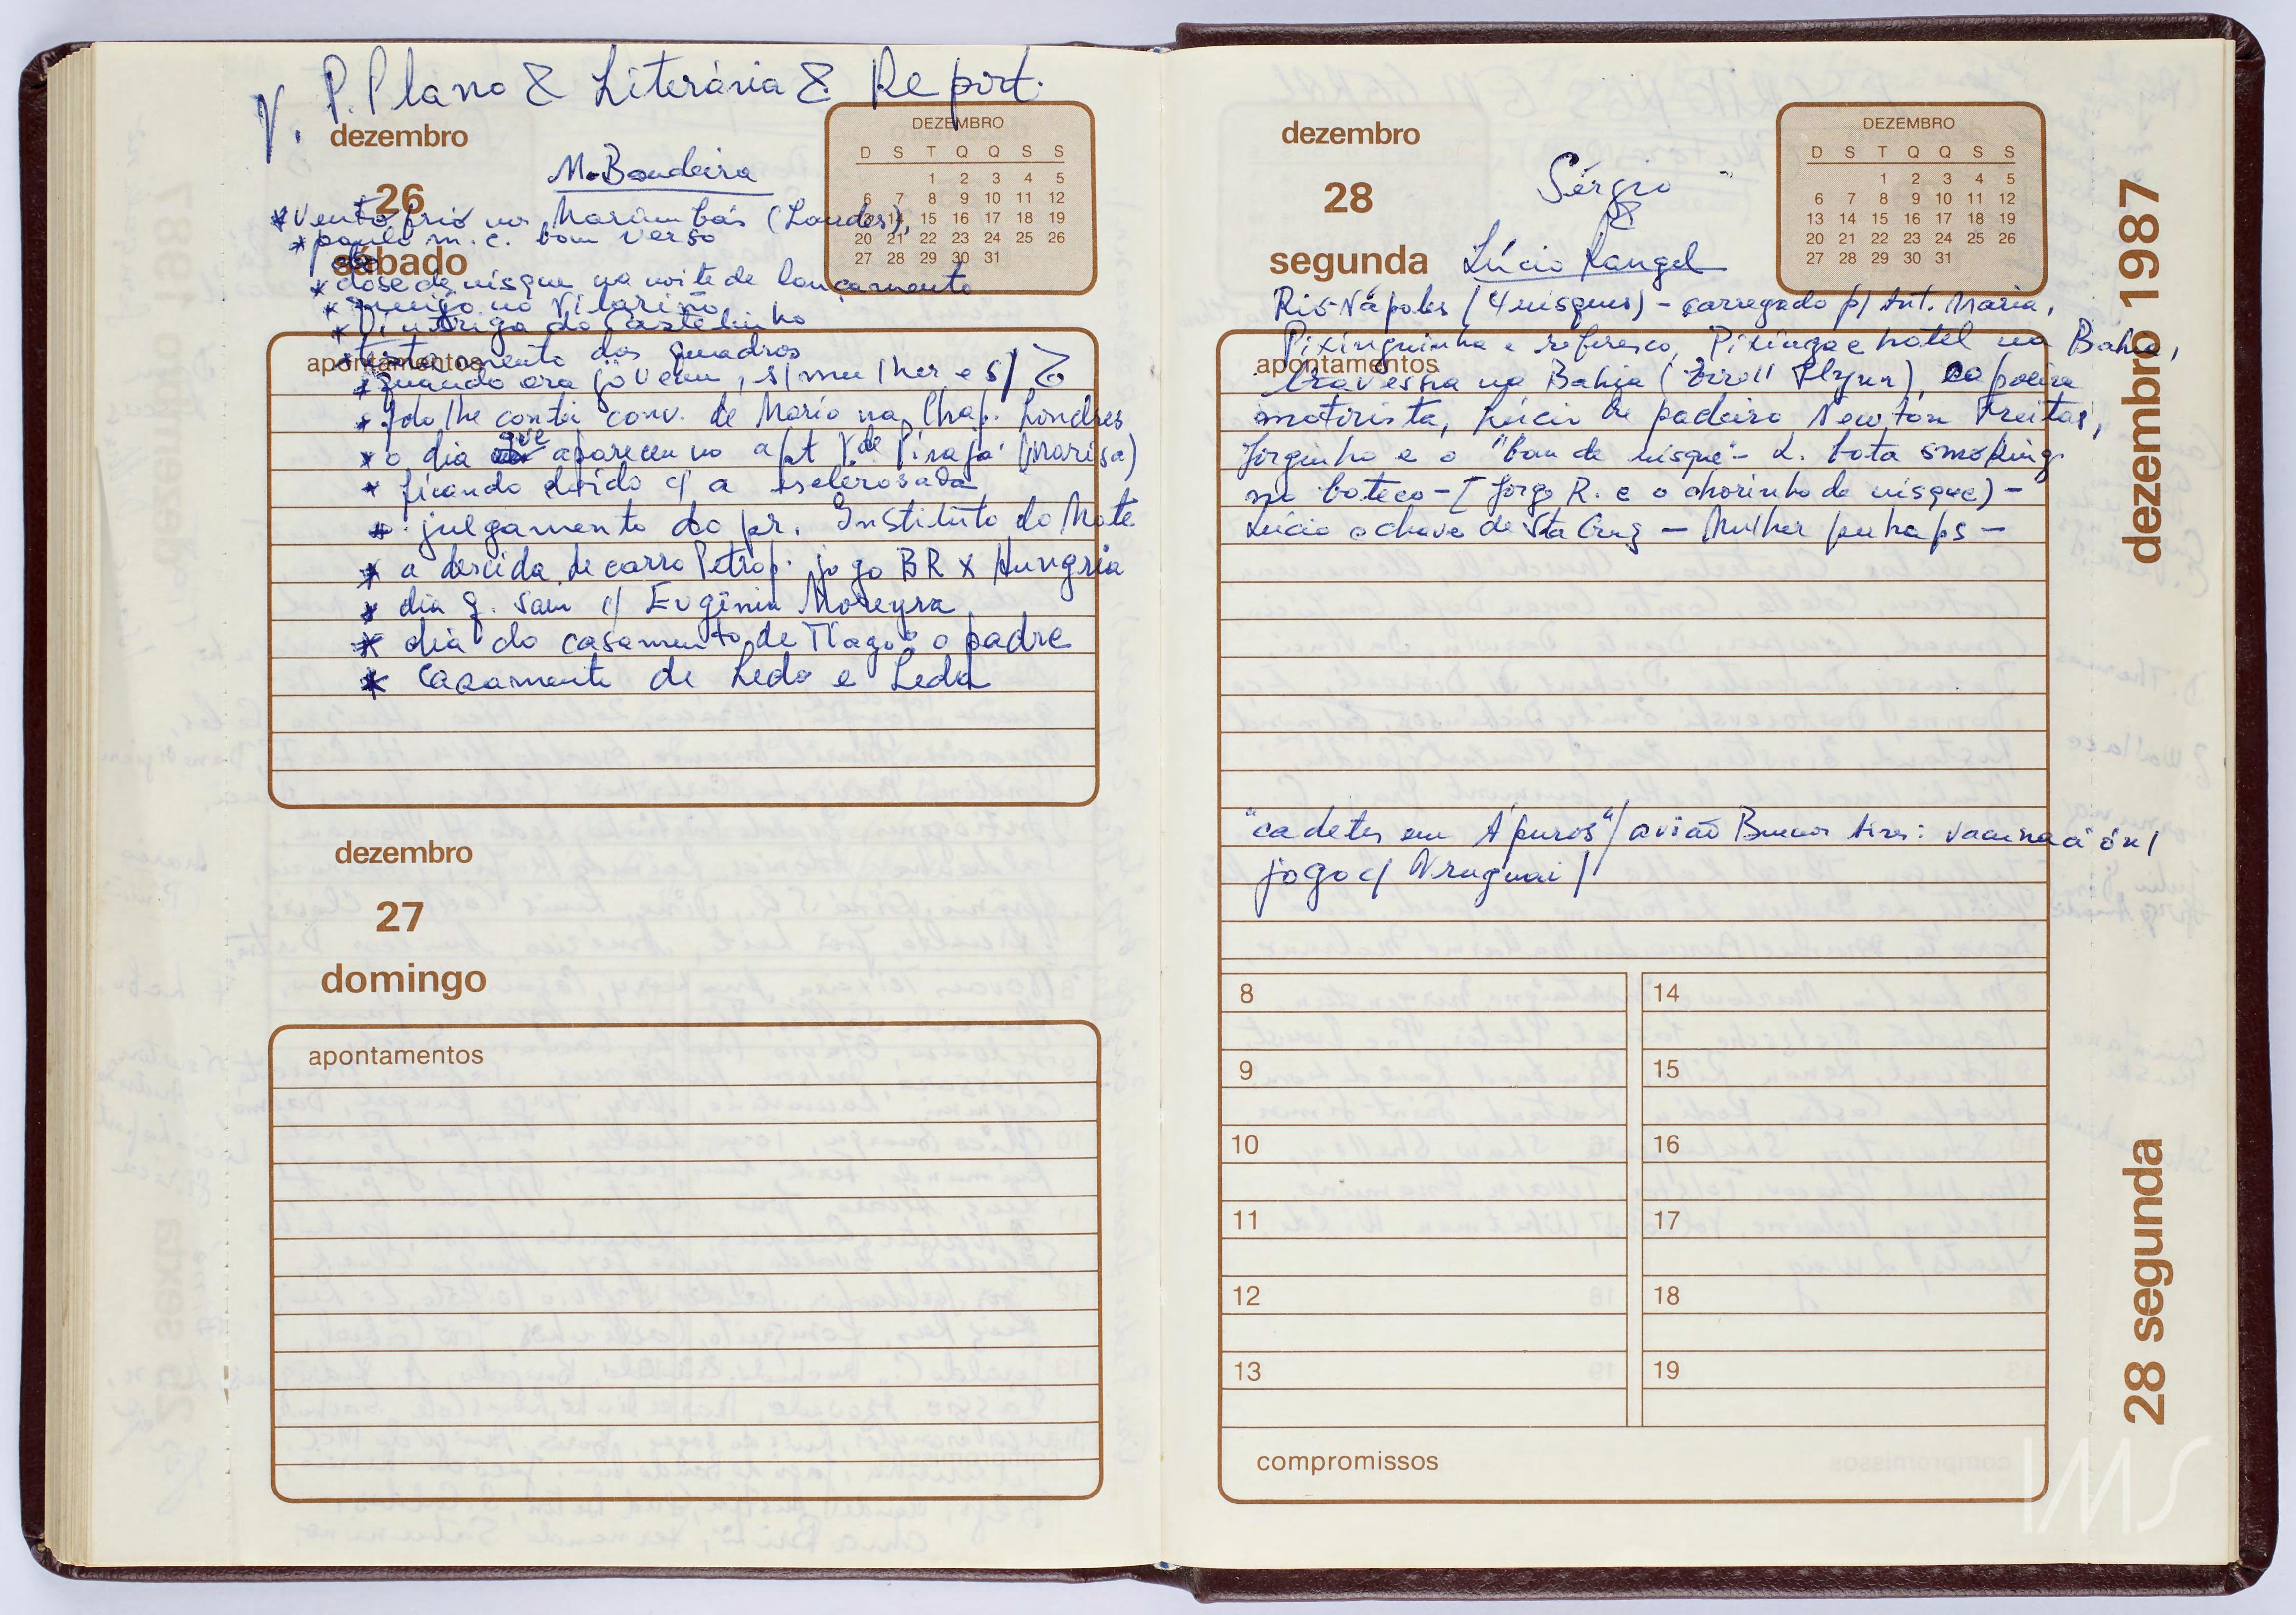 V. P. Plano & Literária & Report.
dezembro
26
sábado
DEZEMBRO
D S T Q Q S S
1 2 3 4 5
6 7 8 9 10 11 12
13 14 15 16 17 18 19
20 21 22 23 24 25 26
27 28 29 30 31
M. Bandeira
* vento frio nos Marimbás (Lourdes),
* paulo m. c. bom verso
* dose de uisque na noite de lançamento
* no Vilariño
* intriga do Castelinho
* dos quadros
apontamentos
* quando era jovem, s/ mulher e s/
* lhe contei conv. de Mario na Chap. Londres
* o dia que apareceu no apt V. de Pirajá (Marisa)
* ficando doido c/ a esclerosada
* julgamento do pr. Instituto do Mate
* a descida de carro Petrop. jogo BR x Hungria
* dia q. saiu c/ Eugênia Moreyra
* dia do casamento de Tiago: o padre
* casamento de Ledo e Leda
dezembro
27
domingo
apontamentos
dezembro
28
segunda
DEZEMBRO
D S T Q Q S S
1 2 3 4 5
6 7 8 9 10 11 12
13 14 15 16 17 18 19
20 21 22 23 24 25 26
27 28 29 30 31
Sérgio
&
Lúcio Rangel
Rio-Nápoles (4 uisques) - carregado p/ Ant. Maria,
Pixinguinha e refresco, Pixinga e hotel na Bahia,
apontamentos
travessia na Bahia (Erroll Flynn), capoeira
motorista, Lúcio de padeiro, Newton Freitas,
Jorginho e o "bom de uisque" - L. bota smoking
no boteco - [Jorge R. e o chorinho de uisque) -
Lúcio e chave de Sta Cruz - Mulher perhaps -
"cadetes em Apuros"/ avião Buenos Aires: vacunación/
jogo c/ Uruguai /
8 14
9 15
10 16
11 17
12 18
13 19
compromissos
dezembro 1987
28 segunda
IMS